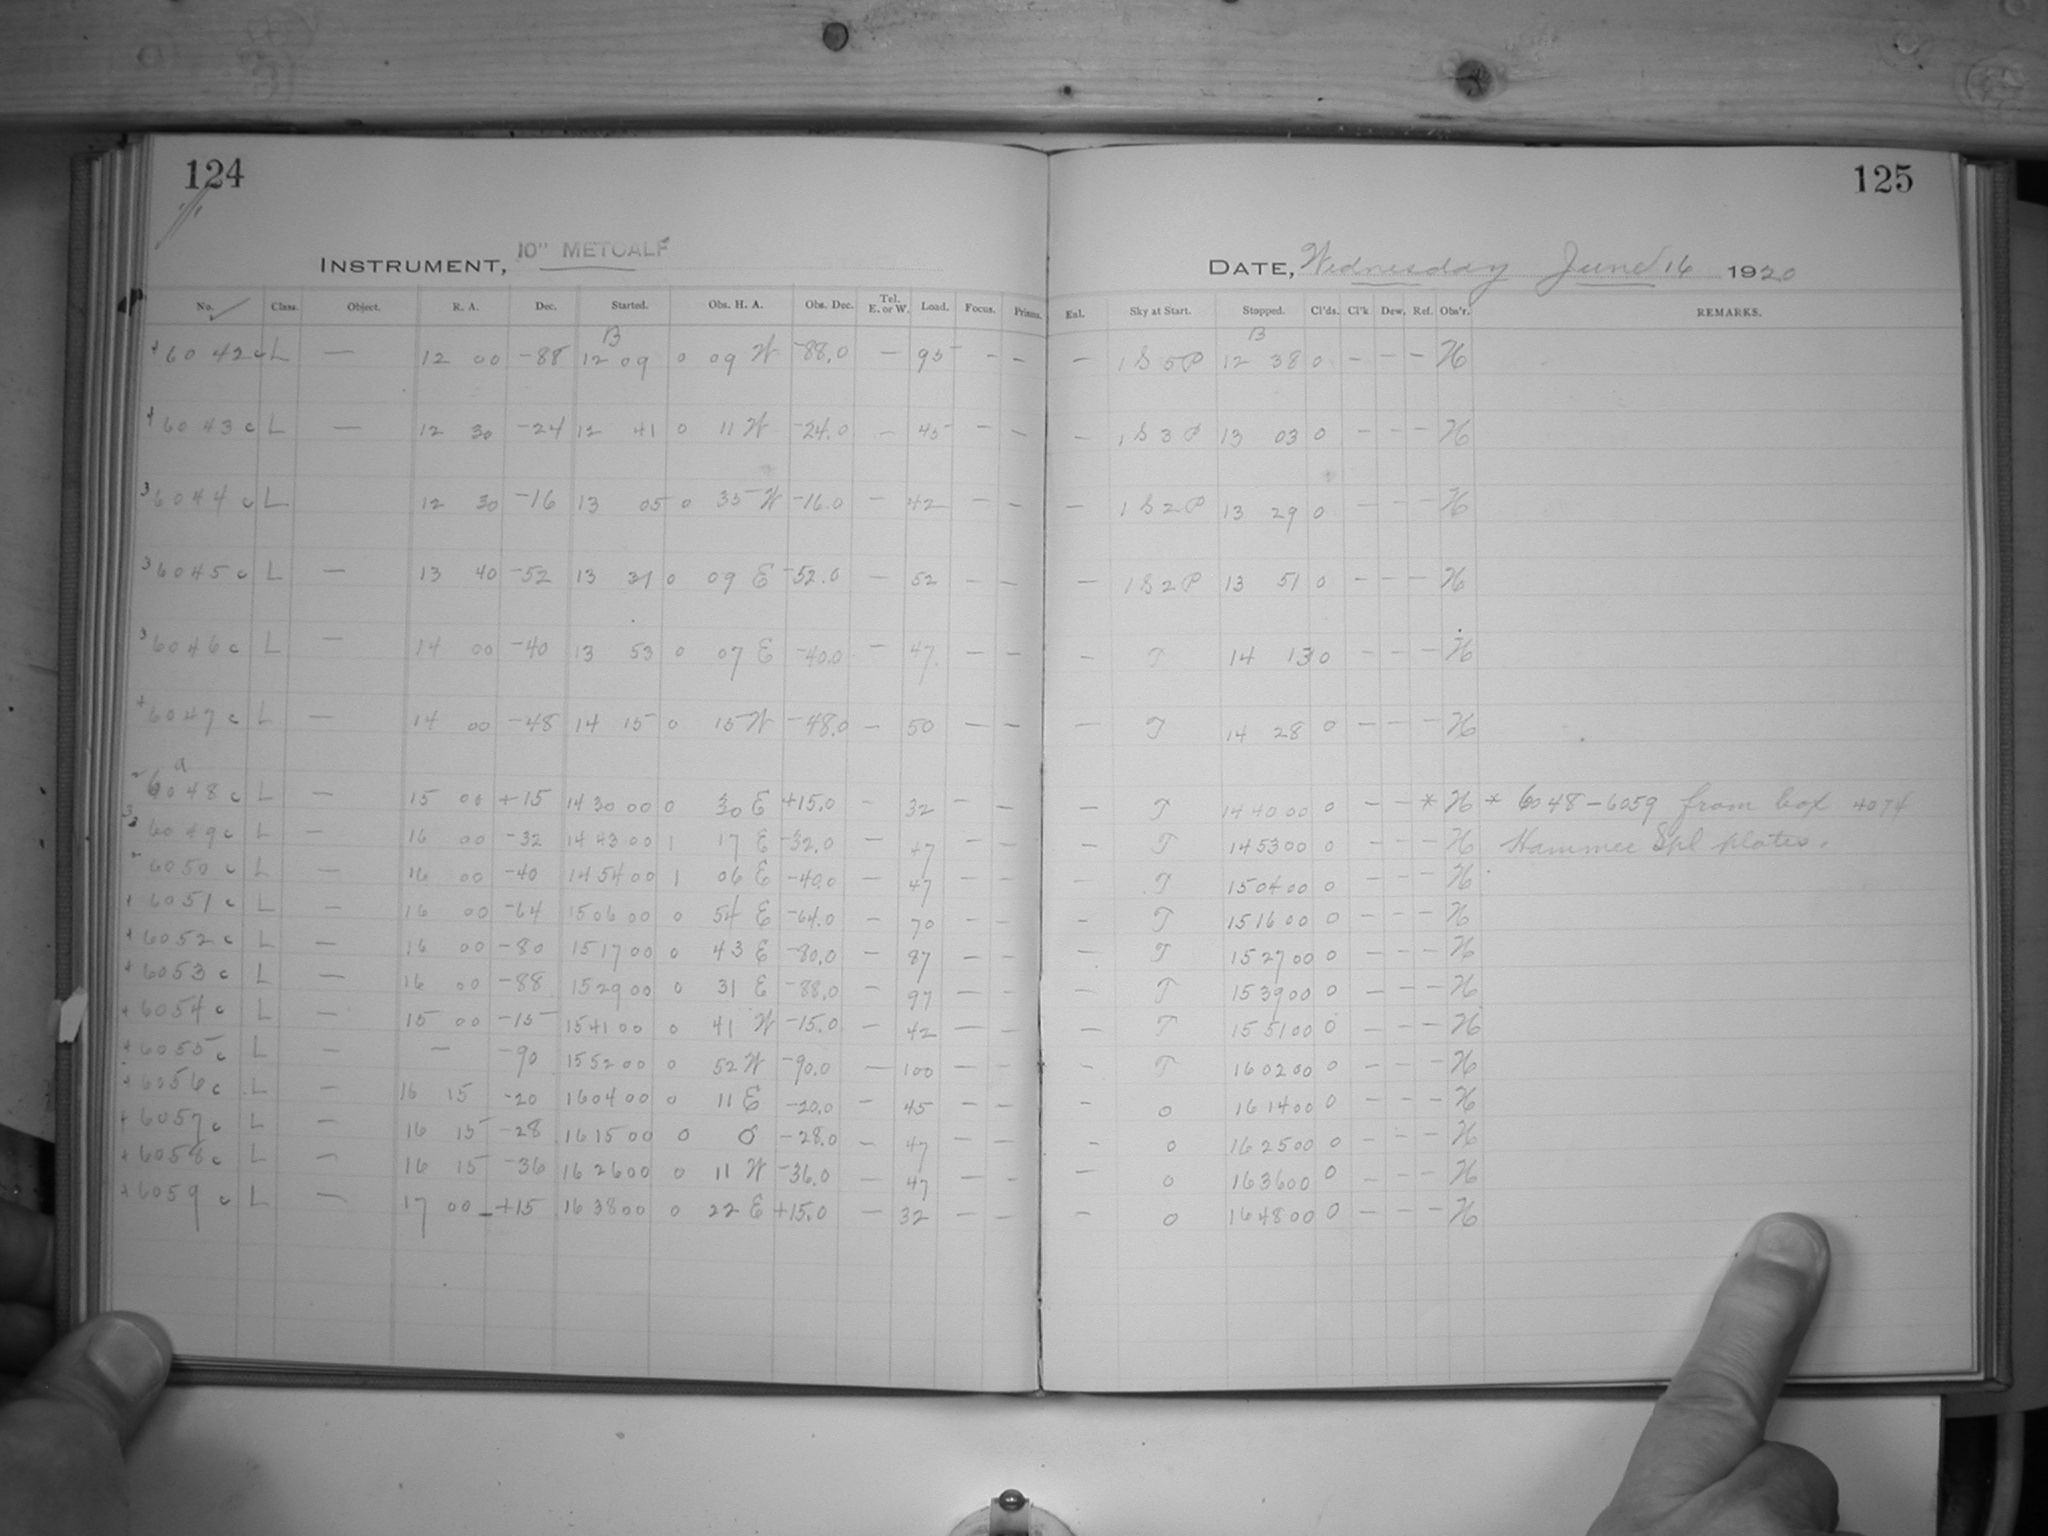 124
125
INSTRUMENT, 10" METCALF
DATE, Wednesday June 16 1920
No. Class. Object. R. A. Dec. Started. Obs. H. A. Obs. Dec. Tel. E. or W. Load. Focus. Prisms. Enl. Sky at Start. Stopped. Cl'ds. Cl'k Dew. Ref. Obs'r. REMARKS.
B B
6042 c L — 12 00 -88 12 09 0 09 W -88.0 — 95 - - — 1S5P 12 38 0 - - - H
6043 c L — 12 30 -24 12 41 0 11 W -24.0 — 45 - - — 1S3P 13 03 0 - - - H
3 6044 c L 12 30 -16 13 05 0 35 W -16.0 — 42 - - — 1S2P 13 29 0 - - - H
3 6045 c L — 13 40 -52 13 31 0 09 E -52.0 — 52 - - — 1S2P 13 51 0 - - - H
3 6046 c L — 14 00 -40 13 53 0 07 E -40.0 — 47 - - — T 14 13 0 - - - H
6047 c L — 14 00 -48 14 15 0 15 W -48.0 — 50 - - — T 14 28 0 - - - H
a
6048 c L — 15 00 +15 14 30 00 0 30 E +15.0 — 32 - - — T 14 40 00 0 - - * H * 6048-6059 from box 4074
6049 c L — 16 00 -32 14 43 00 1 17 E -32.0 — 47 - - — T 14 53 00 0 - - - H Hammer Spl plates.
6050 c L — 16 00 -40 14 54 00 1 06 E -40.0 — 47 - - — T 15 04 00 0 - - - H
6051 c L — 16 00 -64 15 06 00 0 54 E -64.0 — 70 - - — T 15 16 00 0 - - - H
6052 c L — 16 00 -80 15 17 00 0 43 E -80.0 — 87 - - — T 15 27 00 0 - - - H
6053 c L — 16 00 -88 15 29 00 0 31 E -88.0 — 97 - - — T 15 39 00 0 - - - H
6054 c L — 15 00 -15 15 41 00 0 41 W -15.0 — 42 - - — T 15 51 00 0 - - - H
6055 c L — — -90 15 52 00 0 52 W -90.0 — 100 - - — T 16 02 00 0 - - - H
6056 c L — 16 15 -20 16 04 00 0 11 E -20.0 — 45 - - — 0 16 14 00 0 - - - H
6057 c L — 16 15 -28 16 15 00 0 0 -28.0 — 47 - - — 0 16 25 00 0 - - - H
6058 c L — 16 15 -36 16 26 00 0 11 W -36.0 — 47 - - — 0 16 36 00 0 - - - H
6059 c L — 17 00 +15 16 38 00 0 22 E +15.0 — 32 - - — 0 16 48 00 0 - - - H